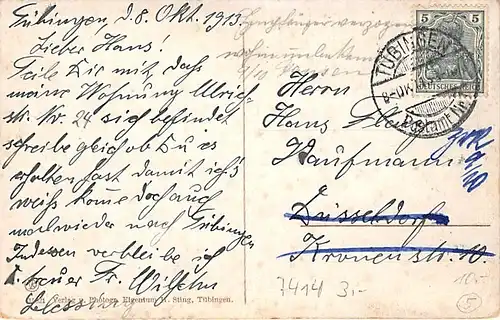 Tübingen, d. 8. Okt. 1913.
Lieber Hans.
Teile Dir mit, dass
meine Wohnung Ulrich-
str. Nr. 24 sich befindet
schreibe gleich ob Du es
erhalten hast damit ich's
weiß komme doch auch
mal wieder nach Tübingen
Indessen verbleibe ich
Dein treuer Fr. Wilhelm
Empfänger verzogen
wohin unbekannt
Verlag u. Photogr. Eigentum H. Sting, Tübingen.
5 5
DEUTSCHES REICH
TÜBINGEN
Postamt Nr.
Herrn
Hans
Kaufmann
Düsseldorf
Kronenstr. 10
7414 3,-
10-
5